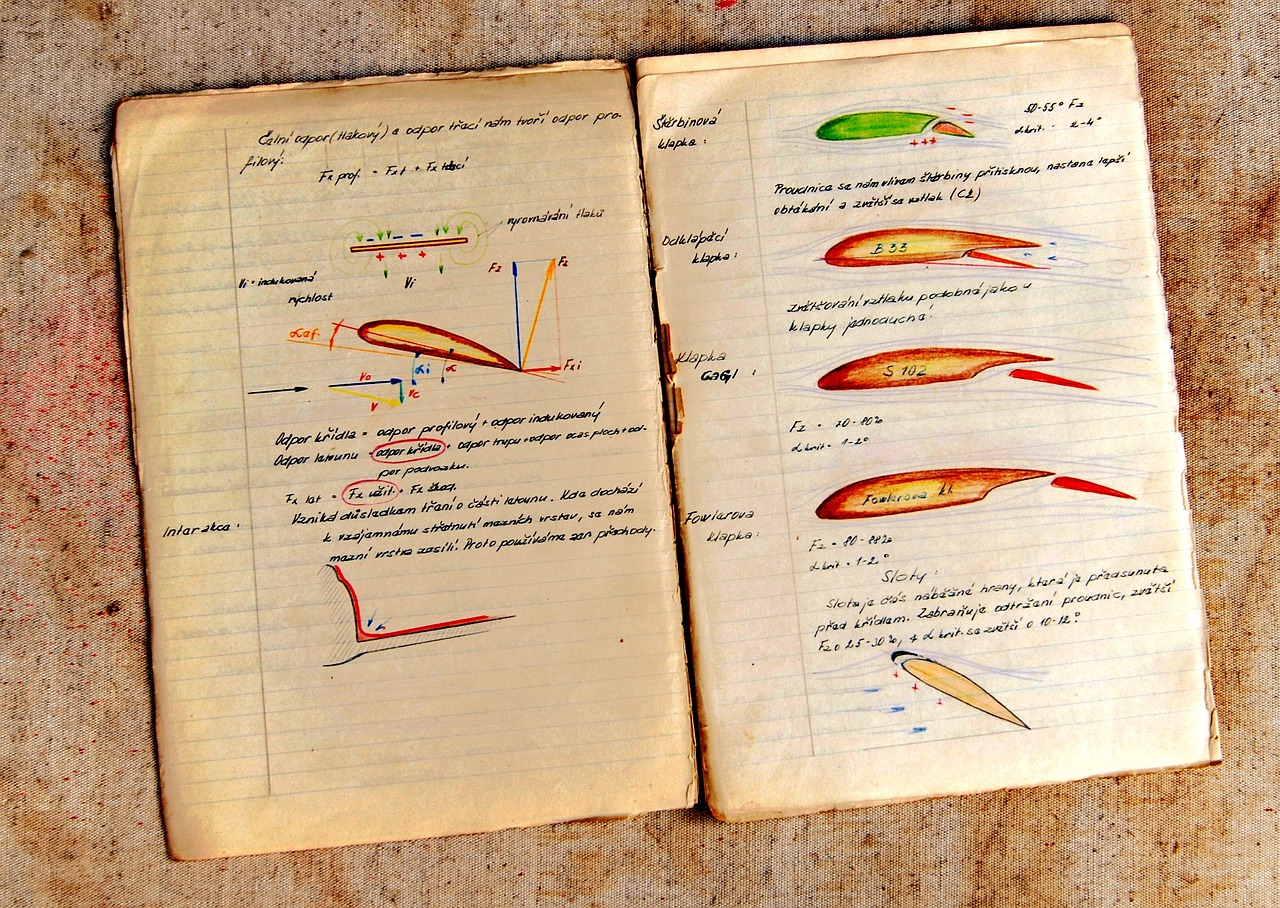 Čelní odpor (tlakový) a odpor třecí nám tvoří odpor pro-
filový:
Fx prof. = Fx t + Fx třecí
vyrovnávání tlaků
Vi = indukovaná
rychlost
Vi
Fz
Fz
αef.
Fxi
αi
α
Vo
Vc
V
Odpor křídla = odpor profilový + odpor indukovaný
Odpor letounu = odpor křídla + odpor trupu + odpor ocas ploch + od-
por podvozku.
Fx let = Fx užit. + Fx škod.
Interakce:
Vzniká důsledkem tření o části letounu. Kde dochází
k vzájemnému střetnutí mezních vrstev, se nám
mezní vrstva zesílí. Proto používáme zen přechody.
Štěrbinová
klapka:
50-55° Fz
αkrit. 2-4°
Proudnice se nám vlivem štěrbiny přitisknou, nastane lepší
obtékání a zvětší se vztlak (Cz)
Odklápěcí
klapka:
B 33
zvětšování vztlaku podobné jako u
klapky jednoduché.
Klapka
GaGl :
S 102
Fz = 70-80%
αkrit = 1-2°
Fowlerova
klapka:
Fowlerova kl.
Fz = 80-88%
αkrit = 1-2°
Sloty:
Slot je část náběžné hrany, která je předsunuta
před křídlem. Zabraňuje odtržení proudnic, zvětší
Fz o 25-30%, α krit. se zvětší o 10-12°